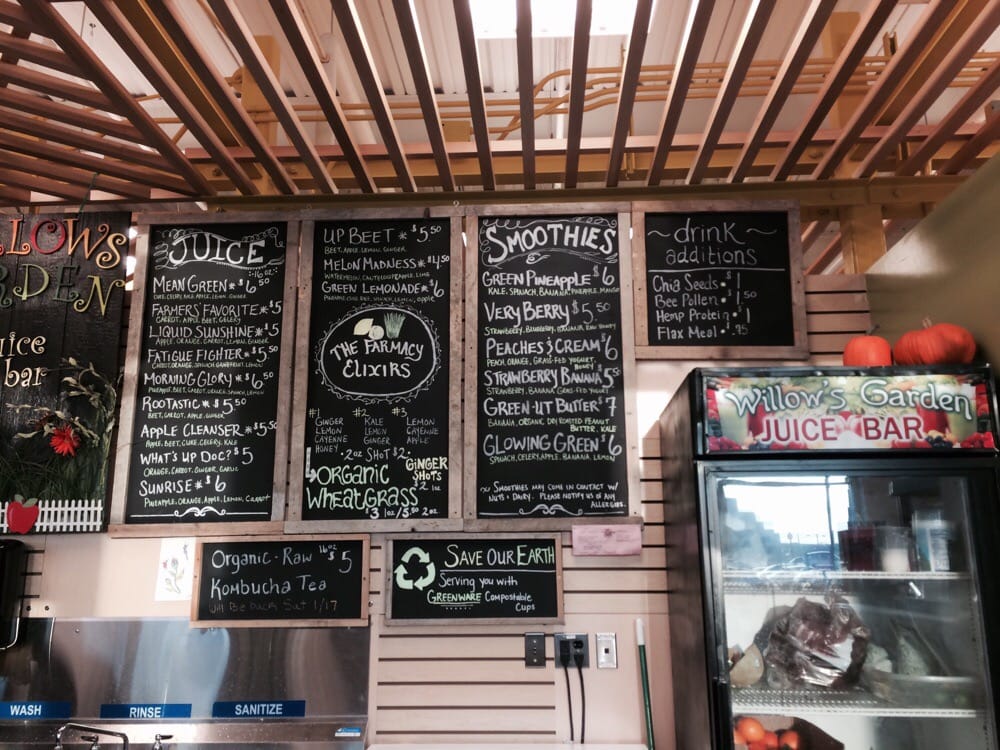 LLOWS
RDEN
uice
bar
JUICE
16 oz
MEAN GREEN * $6.50
FARMERS' FAVORITE * $5
CARROT, APPLE, BEET, CELERY
LIQUID SUNSHINE * $5
CARROT, ORANGE, LEMON, GINGER
FATIGUE FIGHTER * $5.50
MORNING GLORY * $6.50
ROOTASTIC * $5.50
BEET, CARROT, APPLE, GINGER
APPLE CLEANSER * $5.50
APPLE, BEET, CUKE, CELERY, KALE
WHAT'S UP DOC? $5
ORANGE, CARROT, GINGER, GARLIC
SUNRISE * $6
PINEAPPLE, ORANGE, APPLE, LEMON, CARROT
UP BEET * $5.50
BEET, APPLE, LEMON, GINGER
MELON MADNESS * $4.50
WATERMELON, CANTELOUPE, APPLE, LIME
GREEN LEMONADE * $6
THE FARMACY
ELIXIRS
#1 GINGER LEMON CAYENNE HONEY
#2 KALE LEMON GINGER
#3 LEMON CAYENNE APPLE
2OZ SHOT $2
ORGANIC
WHEATGRASS
$3 1oz/5.50 2oz
GINGER
SHOTS
$2 1oz
SMOOTHIES
GREEN PINEAPPLE $6
KALE, SPINACH, BANANA, PINEAPPLE, MANGO
VERY BERRY $5.50
STRAWBERRY, BLUEBERRY, BANANA, RAW HONEY
PEACHES & CREAM $6
PEACH, ORANGE, GRASS-FED YOGURT,
HONEY
STRAWBERRY BANANA $5.50
GREEN-UT BUTTER $7
BANANA, ORGANIC DRY ROASTED PEANUT
BUTTER, KALE
GLOWING GREEN $6
SPINACH, CELERY, APPLE, BANANA, LEMON
SMOOTHIES MAY COME IN CONTACT W/
NUTS + DAIRY. PLEASE NOTIFY US OF ANY
ALLERGIES.
~ drink ~
additions
Chia Seeds $1
Bee Pollen $1.50
Hemp Protein $1
Flax Meal $.75
Organic - Raw 16oz $5
Kombucha Tea
Will Be Back Sat 1/17
SAVE OUR EARTH
Serving you with
GREENWARE Compostable
Cups
Willow's Garden
JUICE BAR
WASH
RINSE
SANITIZE